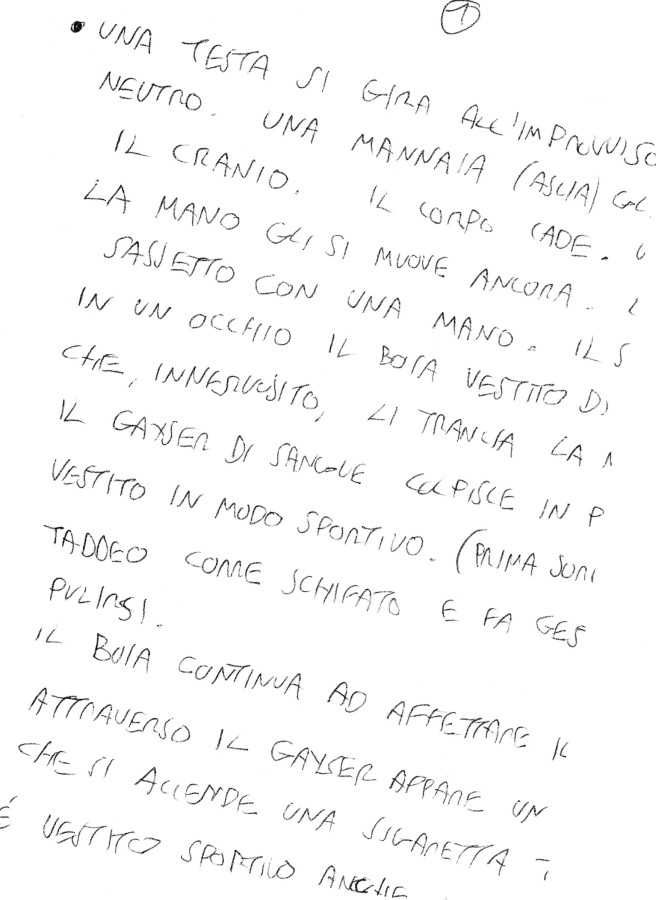 1
• UNA TESTA SI GIRA ALL'IMPROVVISO
NEUTRO. UNA MANNAIA (ASCIA)
IL CRANIO. IL CORPO CADE.
LA MANO GLI SI MUOVE ANCORA.
SASSETTO CON UNA MANO. IL S
IN UN OCCHIO IL BOIA VESTITO DI
CHE, INNERVOSITO, LI TRANCIA LA
IL GAYSER DI SANGUE COLPISCE IN P
VESTITO IN MODO SPORTIVO. (PRIMA
TADDEO CORRE SCHIFATO E FA GES
PULIRSI.
IL BOIA CONTINUA AD AFFETTARE IL
ATTRAVERSO IL GAYSER APPARE UN
CHE SI ACCENDE UNA SIGARETTA
É VESTITO SPORTIVO ANCHE